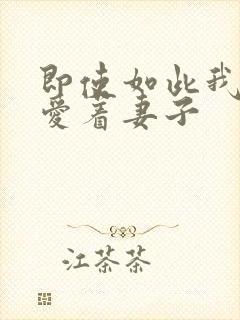 即使如此我
爱着妻子
江茶茶